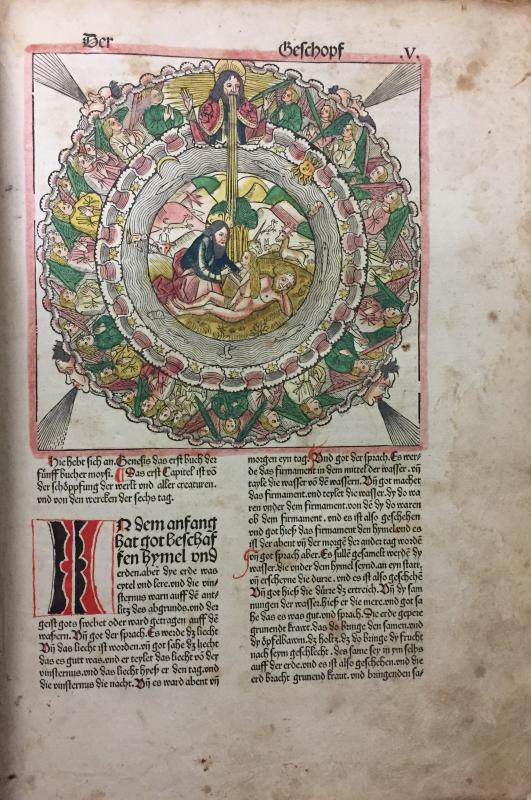 Der
Geschopf
.V.
Hie hebt sich an. Genesis das erst buch der
fünff bucher moysi. Das erst Capitel ist võ
der schöpffung der werlt vnd aller creaturen.
vnd von den wercken der sechs tag.
IN dem anfang
hat got beschaf
fen hymel vnd
erden. aber dye erde was
eytel vnd lere. vnd die vin⸗
sternus warn auff dẽ ant⸗
litz des abgrunds. vnd der
geist gots swebet oder ward getragen auff dẽ
wassern. Vñ got der sprach. Es werde dz liecht
Vñ das liecht ist worden. vñ got sahe dz liecht
das es gut was. vnd er teylet das liecht võ der
vinsternus. vnd das liecht hyeß er den tag. vnd
die vinsternus die nacht. Vñ es ward abent vñ
morgen eyn tag. Vnd got der sprach. Es wer⸗
de das firmament in dem mittel der wasser. vñ
tayle die wasser võ dẽ wassern. Vñ got machet
das firmament. vnd teylet die wasser. dy do wa
ren vnder dem firmament. von dẽ dy do waren
ob dem firmament. vnd es ist also geschehen
vnd got hieß das firmament den hymel. vnd es
ist der abent vñ der morgẽ der ander tag wordẽ
vñ got sprach aber. Es sullẽ gesamelt werdẽ dy
wasser. die vnder dem hymel seynd. an eyn statt.
vñ erscheyne die durre. vnd es ist also geschehẽ
Vñ got hieß die dürre dz ertreich. Vñ dy sam
nungen der wasser. hieß er die mere. vnd got sa
he das es was gut. vnd sprach. Die erde gepere
grunendt kraut. das do bringe den samen. vnd
dy öpfelbawm. dz holtz. dz do bringe dy frucht
nach seym geschlecht. des same sey in ym selbs
auff der erde. vnd es ist also geschehen. vnd die
erd bracht grunend kraut. vnd bringenden sa⸗